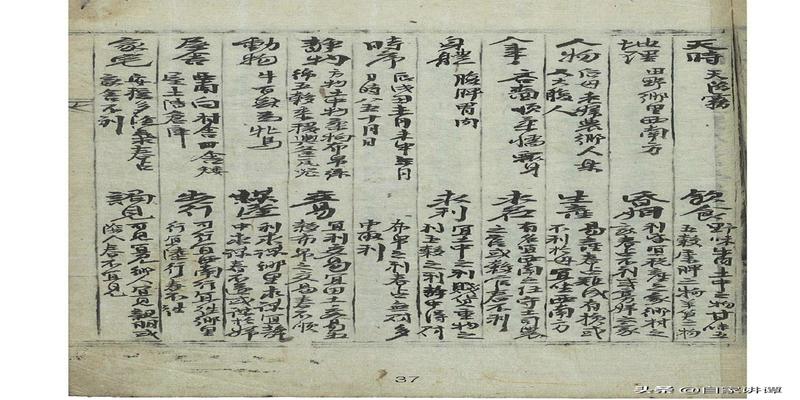 天時 天陰霧
地理 田野鄉里西南方
人物 后母老婦農鄉人衆
大腹人
人事 吝嗇柔懦
身體 腹脾胃肉
時序 辰戌丑未月未申年月
日時八五十月日
靜物 方物土中物柔物布帛絲
綿五穀瓦器
動物 牛百獸爲牝馬
屋舍 西南向村舍田舍矮
屋土階倉庫
家宅 安穩多陰氣春占
家舍不利
飲食 野味牛肉土中之物甘味
五穀之物
婚姻 利之家鄉村之
家春占不利或寡婦之家
生產 易產春占難產有損或
不利於母宜坐西南方
求名 有名宜西南之任守土司農
之官或教官春不利
求利 宜土中之利賤貨重物之
利土穀之利靜中得利
布帛之利春占無利多
中取利
交易 宜利交易宜田土交易五
穀布帛之交易春不順
謀望 利求謀鄉里求謀宜靜
中求謀春或謀於婦
出行 可行宜西南行宜往鄉里
行宜陸行春不往
謁見 可見宜見鄉人宜見親朋或
陰人春不宜見
37
头条 @自家讲谭